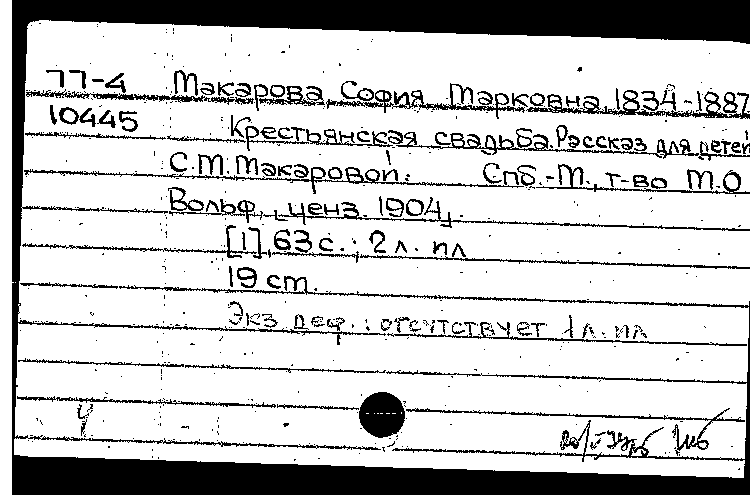 77-4 Макарова, София Марковна, 1834-1887
10445 Крестьянская свадьба. Рассказ для детей
С.М. Макаровой. Спб.-М., т-во М.О
Вольф, [ценз. 1904].
[1], 63 с.; 2 л. ил
19 cm.
Экз деф.: отсутствует 1 л. ил
Ч